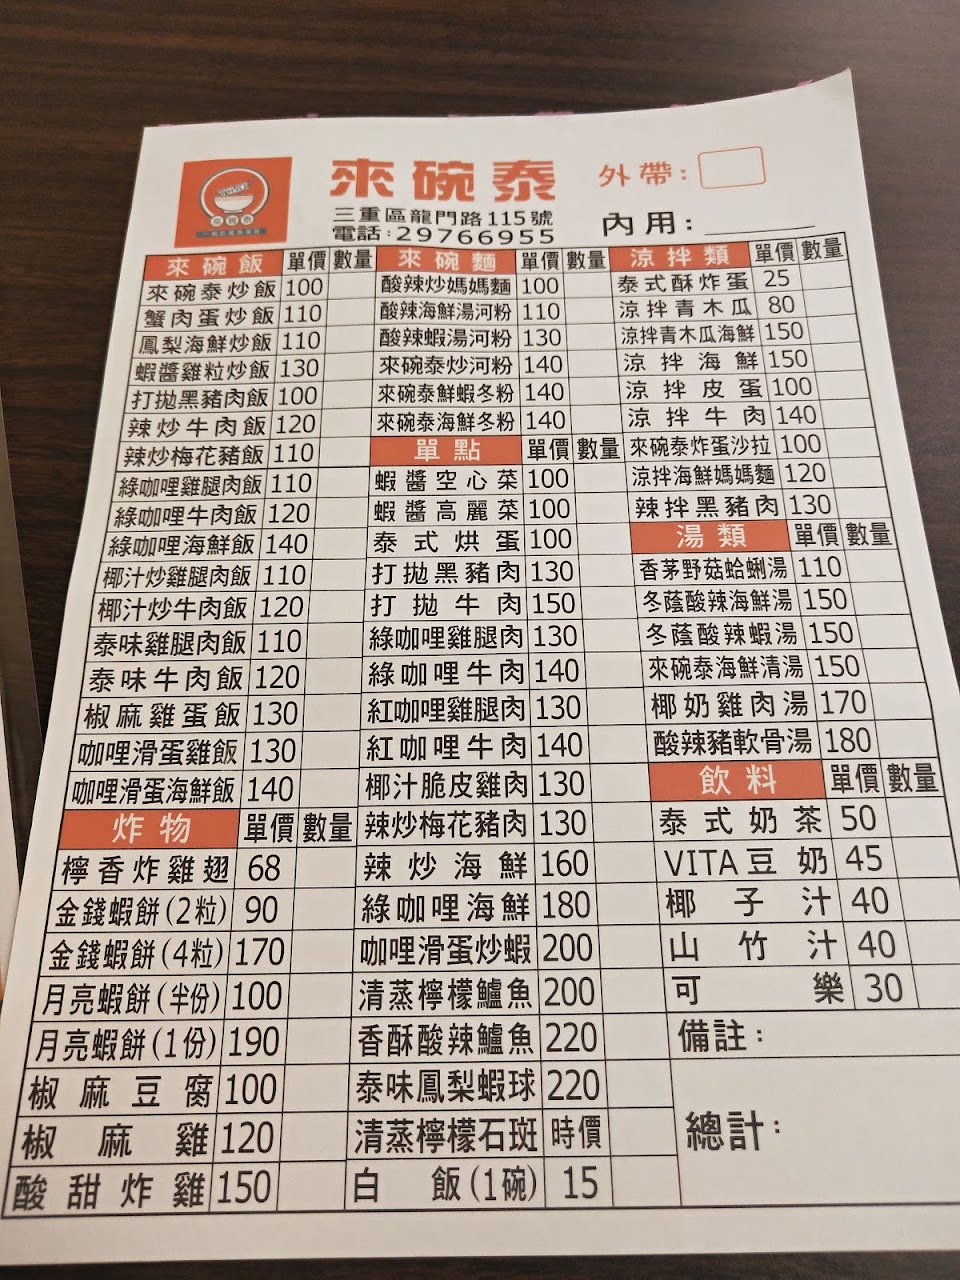 THAI
來碗泰
來碗泰
外帶：
三重區龍門路115號
電話：29766955
內用：
來碗飯 單價 數量
來碗泰炒飯 100
蟹肉蛋炒飯 110
鳳梨海鮮炒飯 110
蝦醬雞粒炒飯 130
打拋黑豬肉飯 100
辣炒牛肉飯 120
辣炒梅花豬飯 110
綠咖哩雞腿肉飯 110
綠咖哩牛肉飯 120
綠咖哩海鮮飯 140
椰汁炒雞腿肉飯 110
椰汁炒牛肉飯 120
泰味雞腿肉飯 110
泰味牛肉飯 120
椒麻雞蛋飯 130
咖哩滑蛋雞飯 130
咖哩滑蛋海鮮飯 140
炸物 單價 數量
檸香炸雞翅 68
金錢蝦餅(2粒) 90
金錢蝦餅(4粒) 170
月亮蝦餅(半份) 100
月亮蝦餅(1份) 190
椒麻豆腐 100
椒麻雞 120
酸甜炸雞 150
來碗麵 單價 數量
酸辣炒媽媽麵 100
酸辣海鮮湯河粉 110
酸辣蝦湯河粉 130
來碗泰炒河粉 140
來碗泰鮮蝦冬粉 140
來碗泰海鮮冬粉 140
單點 單價 數量
蝦醬空心菜 100
蝦醬高麗菜 100
泰式烘蛋 100
打拋黑豬肉 130
打拋牛肉 150
綠咖哩雞腿肉 130
綠咖哩牛肉 140
紅咖哩雞腿肉 130
紅咖哩牛肉 140
椰汁脆皮雞肉 130
辣炒梅花豬肉 130
辣炒海鮮 160
綠咖哩海鮮 180
咖哩滑蛋炒蝦 200
清蒸檸檬鱸魚 200
香酥酸辣鱸魚 220
泰味鳳梨蝦球 220
清蒸檸檬石斑 時價
白飯(1碗) 15
涼拌類 單價 數量
泰式酥炸蛋 25
涼拌青木瓜 80
涼拌青木瓜海鮮 150
涼拌海鮮 150
涼拌皮蛋 100
涼拌牛肉 140
來碗泰炸蛋沙拉 100
涼拌海鮮媽媽麵 120
辣拌黑豬肉 130
湯類 單價 數量
香茅野菇蛤蜊湯 110
冬蔭酸辣海鮮湯 150
冬蔭酸辣蝦湯 150
來碗泰海鮮清湯 150
椰奶雞肉湯 170
酸辣豬軟骨湯 180
飲料 單價 數量
泰式奶茶 50
VITA豆奶 45
椰子汁 40
山竹汁 40
可樂 30
備註：
總計：